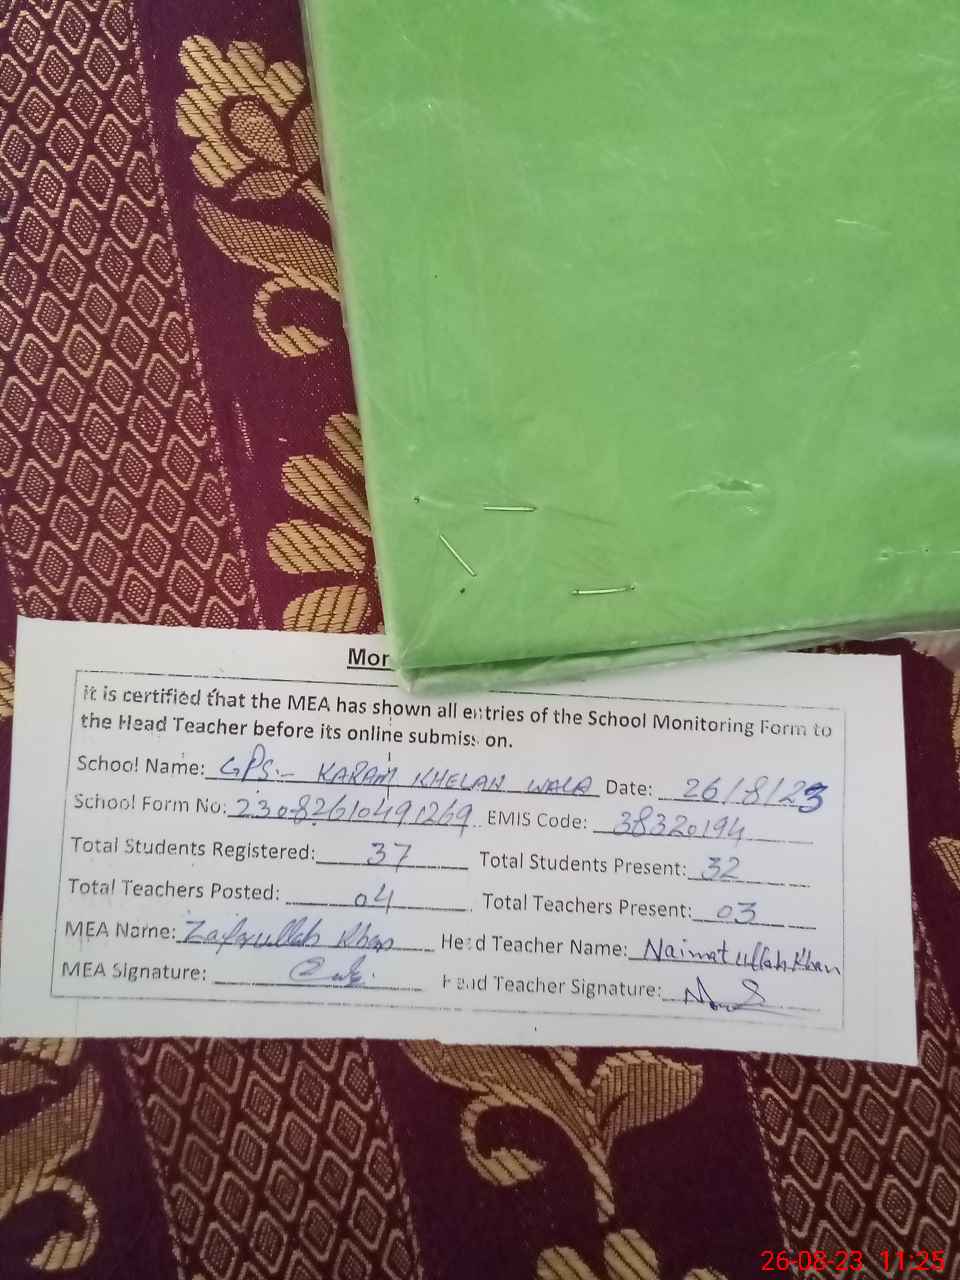 Mor
it is certified that the MEA has shown all entries of the School Monitoring Form to
the Head Teacher before its online submission.
School Name: GPS:- KARAM KHELAN WALA Date: 26/8/23
School Form No: 2308261049 1269 EMIS Code: 38320194
Total Students Registered: 37 Total Students Present: 32
Total Teachers Posted: 04 Total Teachers Present: 03
MEA Name: Zafarullah Khan Head Teacher Name: Naimat ullah Khan
MEA Signature: Head Teacher Signature:
26-08-23 11:25